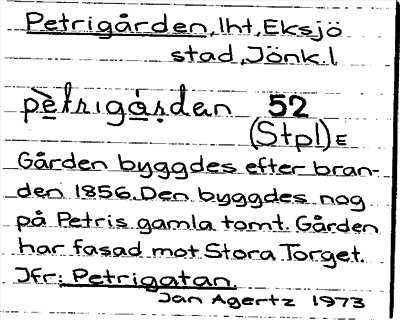 Petrigården, lht, Eksjö
stad, Jönk. l
pètrigárdan 52
(Stpl) E
Gården byggdes efter bran-
den 1856. Den byggdes nog
på Petris gamla tomt. Gården
har fasad mot Stora Torget.
Jfr: Petrigatan.
Jan Agertz 1973